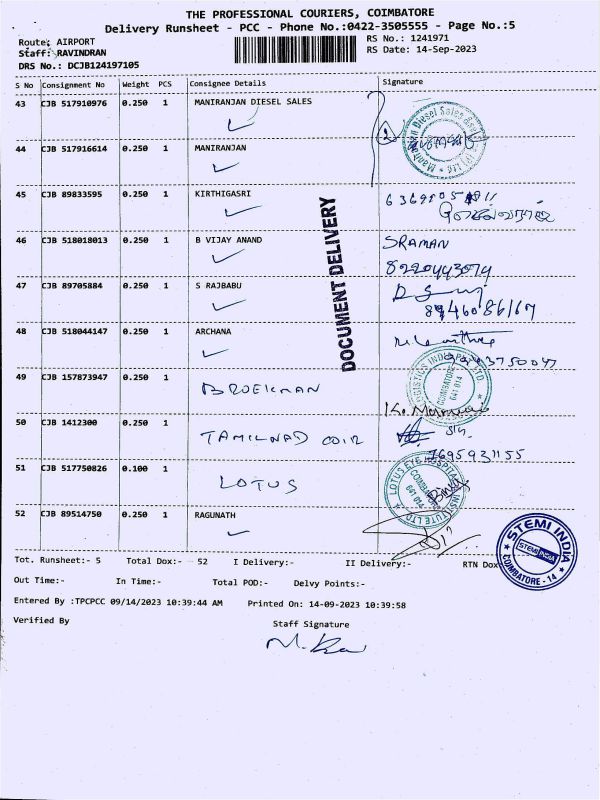 THE PROFESSIONAL COURIERS, COIMBATORE
Delivery Runsheet - PCC - Phone No.:0422-3505555 - Page No.:5
Route: AIRPORT
RS No.: 1241971
Staff: RAVINDRAN
RS Date: 14-Sep-2023
DRS No.: DCJB124197105
S No Consignment No Weight PCS Consignee Details Signature
43 CJB 517910976 0.250 1 MANIRANJAN DIESEL SALES
44 CJB 517916614 0.250 1 MANIRANJAN
45 CJB 89833595 0.250 1 KIRTHIGASRI
46 CJB 518018013 0.250 1 B VIJAY ANAND SRAMAN
8220443074
47 CJB 89705884 0.250 1 S RAJBABU
48 CJB 518044147 0.250 1 ARCHANA
DOCUMENT DELIVERY
49 CJB 157873947 0.250 1 BROEKMAN
COIMBATORE
641 014
50 CJB 1412300 0.250 1 TAMILNAD COIR
7695931155
51 CJB 517750826 0.100 1 LOTUS
LOTUS EYE HOSPITAL INSTITUTE LTD
52 CJB 89514750 0.250 1 RAGUNATH
STEMI INDIA
STEMI INDIA
COIMBATORE - 14
Tot. Runsheet:- 5 Total Dox:- 52 I Delivery:- II Delivery:- RTN Dox
Out Time:- In Time:- Total POD:- Delvy Points:-
Entered By :TPCPCC 09/14/2023 10:39:44 AM Printed On: 14-09-2023 10:39:58
Verified By Staff Signature